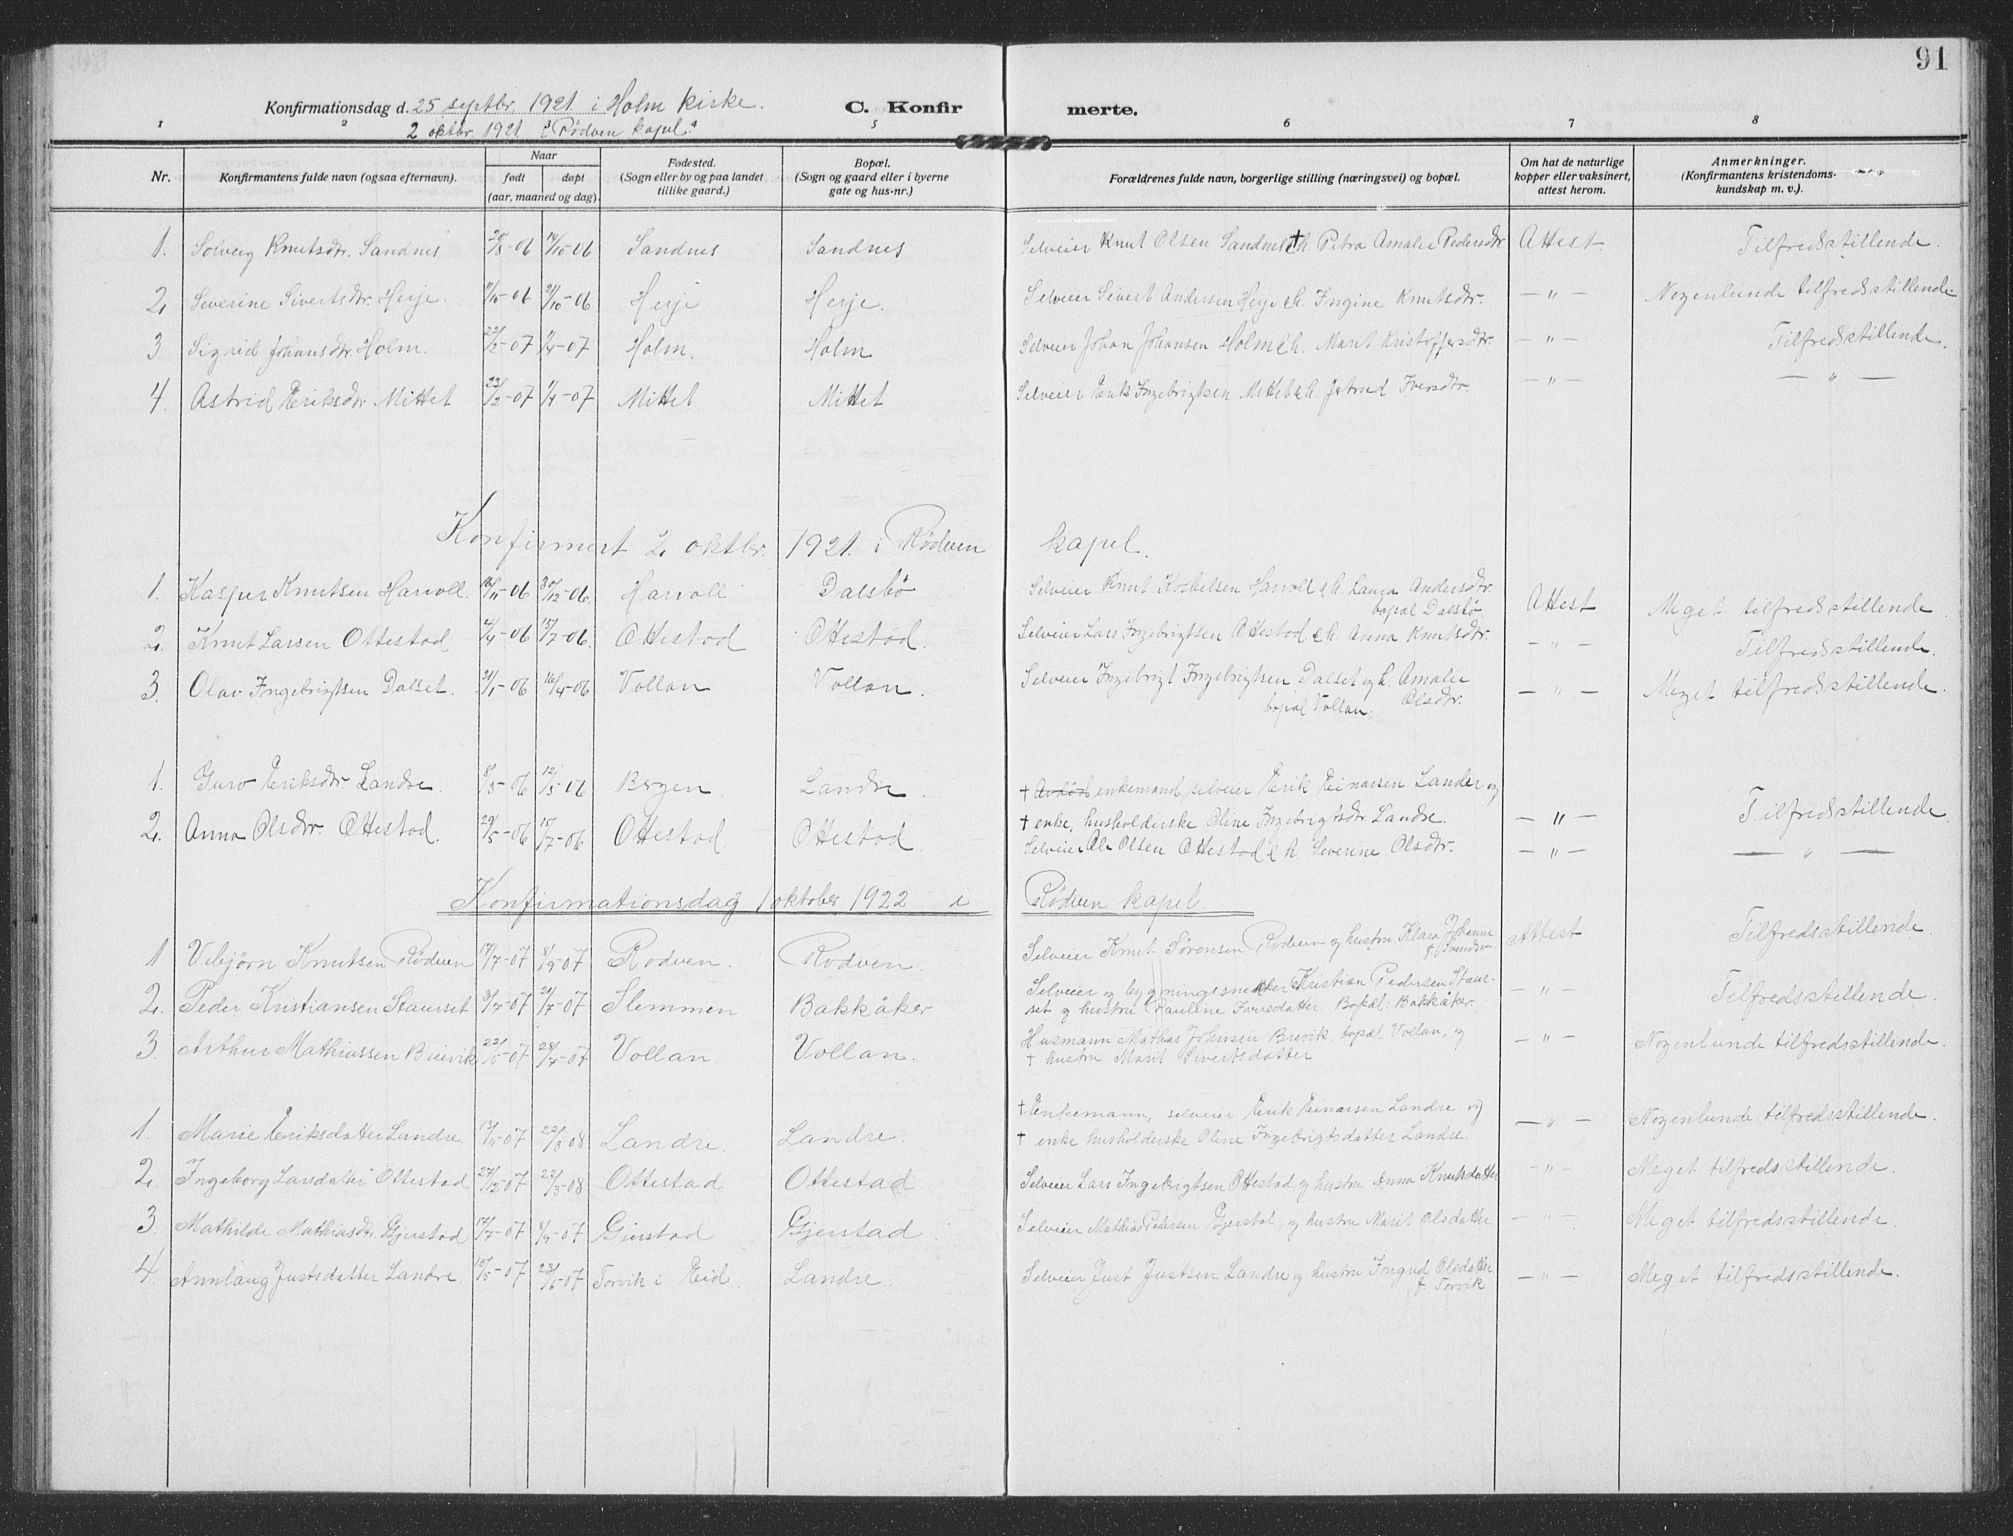 91
Konfirmationsdag d. 25 septbr. 1921. i Holm kirke. C. Konfirmerte.
2 oktbr. 1921. i Rødven kapel.
1 2 3 4 5 6 7 8
Nr. Konfirmantens fulde navn (ogsaa efternavn). Naar født døpt (aar, maaned og dag). Fødested. (Sogn eller by og paa landet tillike gaard.) Bopæl. (Sogn og gaard eller i byerne gate og hus-nr.) Forældrenes fulde navn, borgerlige stilling (næringsvei) og bopæl. Om hat de naturlige kopper eller vaksinert, attest herom. Anmerkninger. (Konfirmantens kristendomskundskap m. v.).
1. Solveig Knutsdr. Sandnes -06 14/10-06 Sandnes Sandnes Selveier Knut Olsen Sandnes & h. Petra Amalie Pedersdtr Attest Tilfredsstillende.
2. Severine Sivertsdtr. Herje. -06 -06 Herje Herje. Selveier Sivert Andersen Herje & h. Ingine Knutsdtr. — " — Nogenlunde tilfredsstillende
3 Sigrid Johansdtr. Holm. 22/2-07 1/4-07 Holm. Holm Selveier Johan Johansen Holm & h. Marit Kristoffersdtr. — " — Tilfredsstillende.
4. Astrid Eriksdtr Mittet 23/2-07 1/4-07 Mittet Mittet Selveier Erik Ingebrigtsen Mittet & h. Jertrud Iversdtr. — " — — " —
Konfirmert 2 oktbr. 1921. i Rødven kapel.
1. Kasper Knutsen Harvoll. 16/11-06 30/12-06. Harvoll Dalsbø Selveier Knut Harvoll & h. Laura Andersdtr. Attest Meget tilfredsstillende
bopæl Dalsbø
2. Knut Larsen Ottestad -06 15/7-06. Ottestad Ottestad. Selveier Lars Ingebrigtsen Ottestad & h. Anna Knutsdtr. — " — Tilfredsstillende.
3. Olav Ingebrigtsen Dalset. 31/1-06 16/4-06 Vollan Vollan. Selveier Ingebrigt Ingebrigtsen Dalset og h. Amalie — " — Meget tilfredsstillende.
bopæl Vollan. Olsdtr.
1. Guro Eriksdtr Landre. 8/3-06 12/5-06 Bergen. Landre. † enkemand, selveier Erik Einarsen Landre og
† enke, husholderske Oline Ingebrigtsdtr Landre. — " — Tilfredsstillende.
2. Anna Olsdtr. Ottestad. 29/5-06 15/7-06 Ottestad. Ottestad. Selveier Ole Olsen Ottestad & h. Severine Olsdtr. — " — — " —
Konfirmationsdag 1 oktober 1922 i Rødven kapel.
1 Vebjørn Knutsen Rødven 17/7-07 8/9-07 Rødven. Rødven. Selveier Knut Sørensen Rødven og hustru Klara Johanne f. Svendsen. Attest Tilfredsstillende.
2. Peder Kristiansen Staurset 3/7-07 21/7-07 Slemmen Bakkåker Selveier og bygningssnekker Kristian Pedersen Staur-
set og hustru Pauline Iversdatter Bopæl: Bakkåker. — " — Tilfredsstillende.
3. Arthur Mathiassen Brevik 22/5-07 28/7-07 Vollan. Vollan. Husmann Mathias Johnsen Brevik, bopæl Vollan, og
† hustru Marit Sivertsdatter — " — Nogenlunde tilfredsstillende.
1. Marie Eriksdatter Landre. -07 22/3 08 Landre. Landre. † Enkemann, selveier Erik Einarsen Landre og
† enke husholderske Oline Ingebrigtsdatter Landre. — " — Nogenlunde tilfredsstillende.
2. Ingeborg Larsdatter Ottestad 27/12-07 22/3-08 Ottestad Ottestad Selveier Lars Ingebrigtsen Ottestad og hustru Anna Knutsdatter — " — Meget tilfredsstillende.
3. Mathilde Mathiasdtr. Gjerstad 17/7-07 8/9-07 Gjerstad Gjerstad Selveier Mathias Pedersen Gjerstad, og hustru Marit Olsdatter — " — Meget tilfredsstillende.
4. Annlaug Justsdatter Landre. 10/5-07 23/6-07 Torvik i Eid. Landre. Selveier Just Justsen Landre og hustru Ingrid Olsdatter
f. Torvik — " — Meget tilfredsstillende.